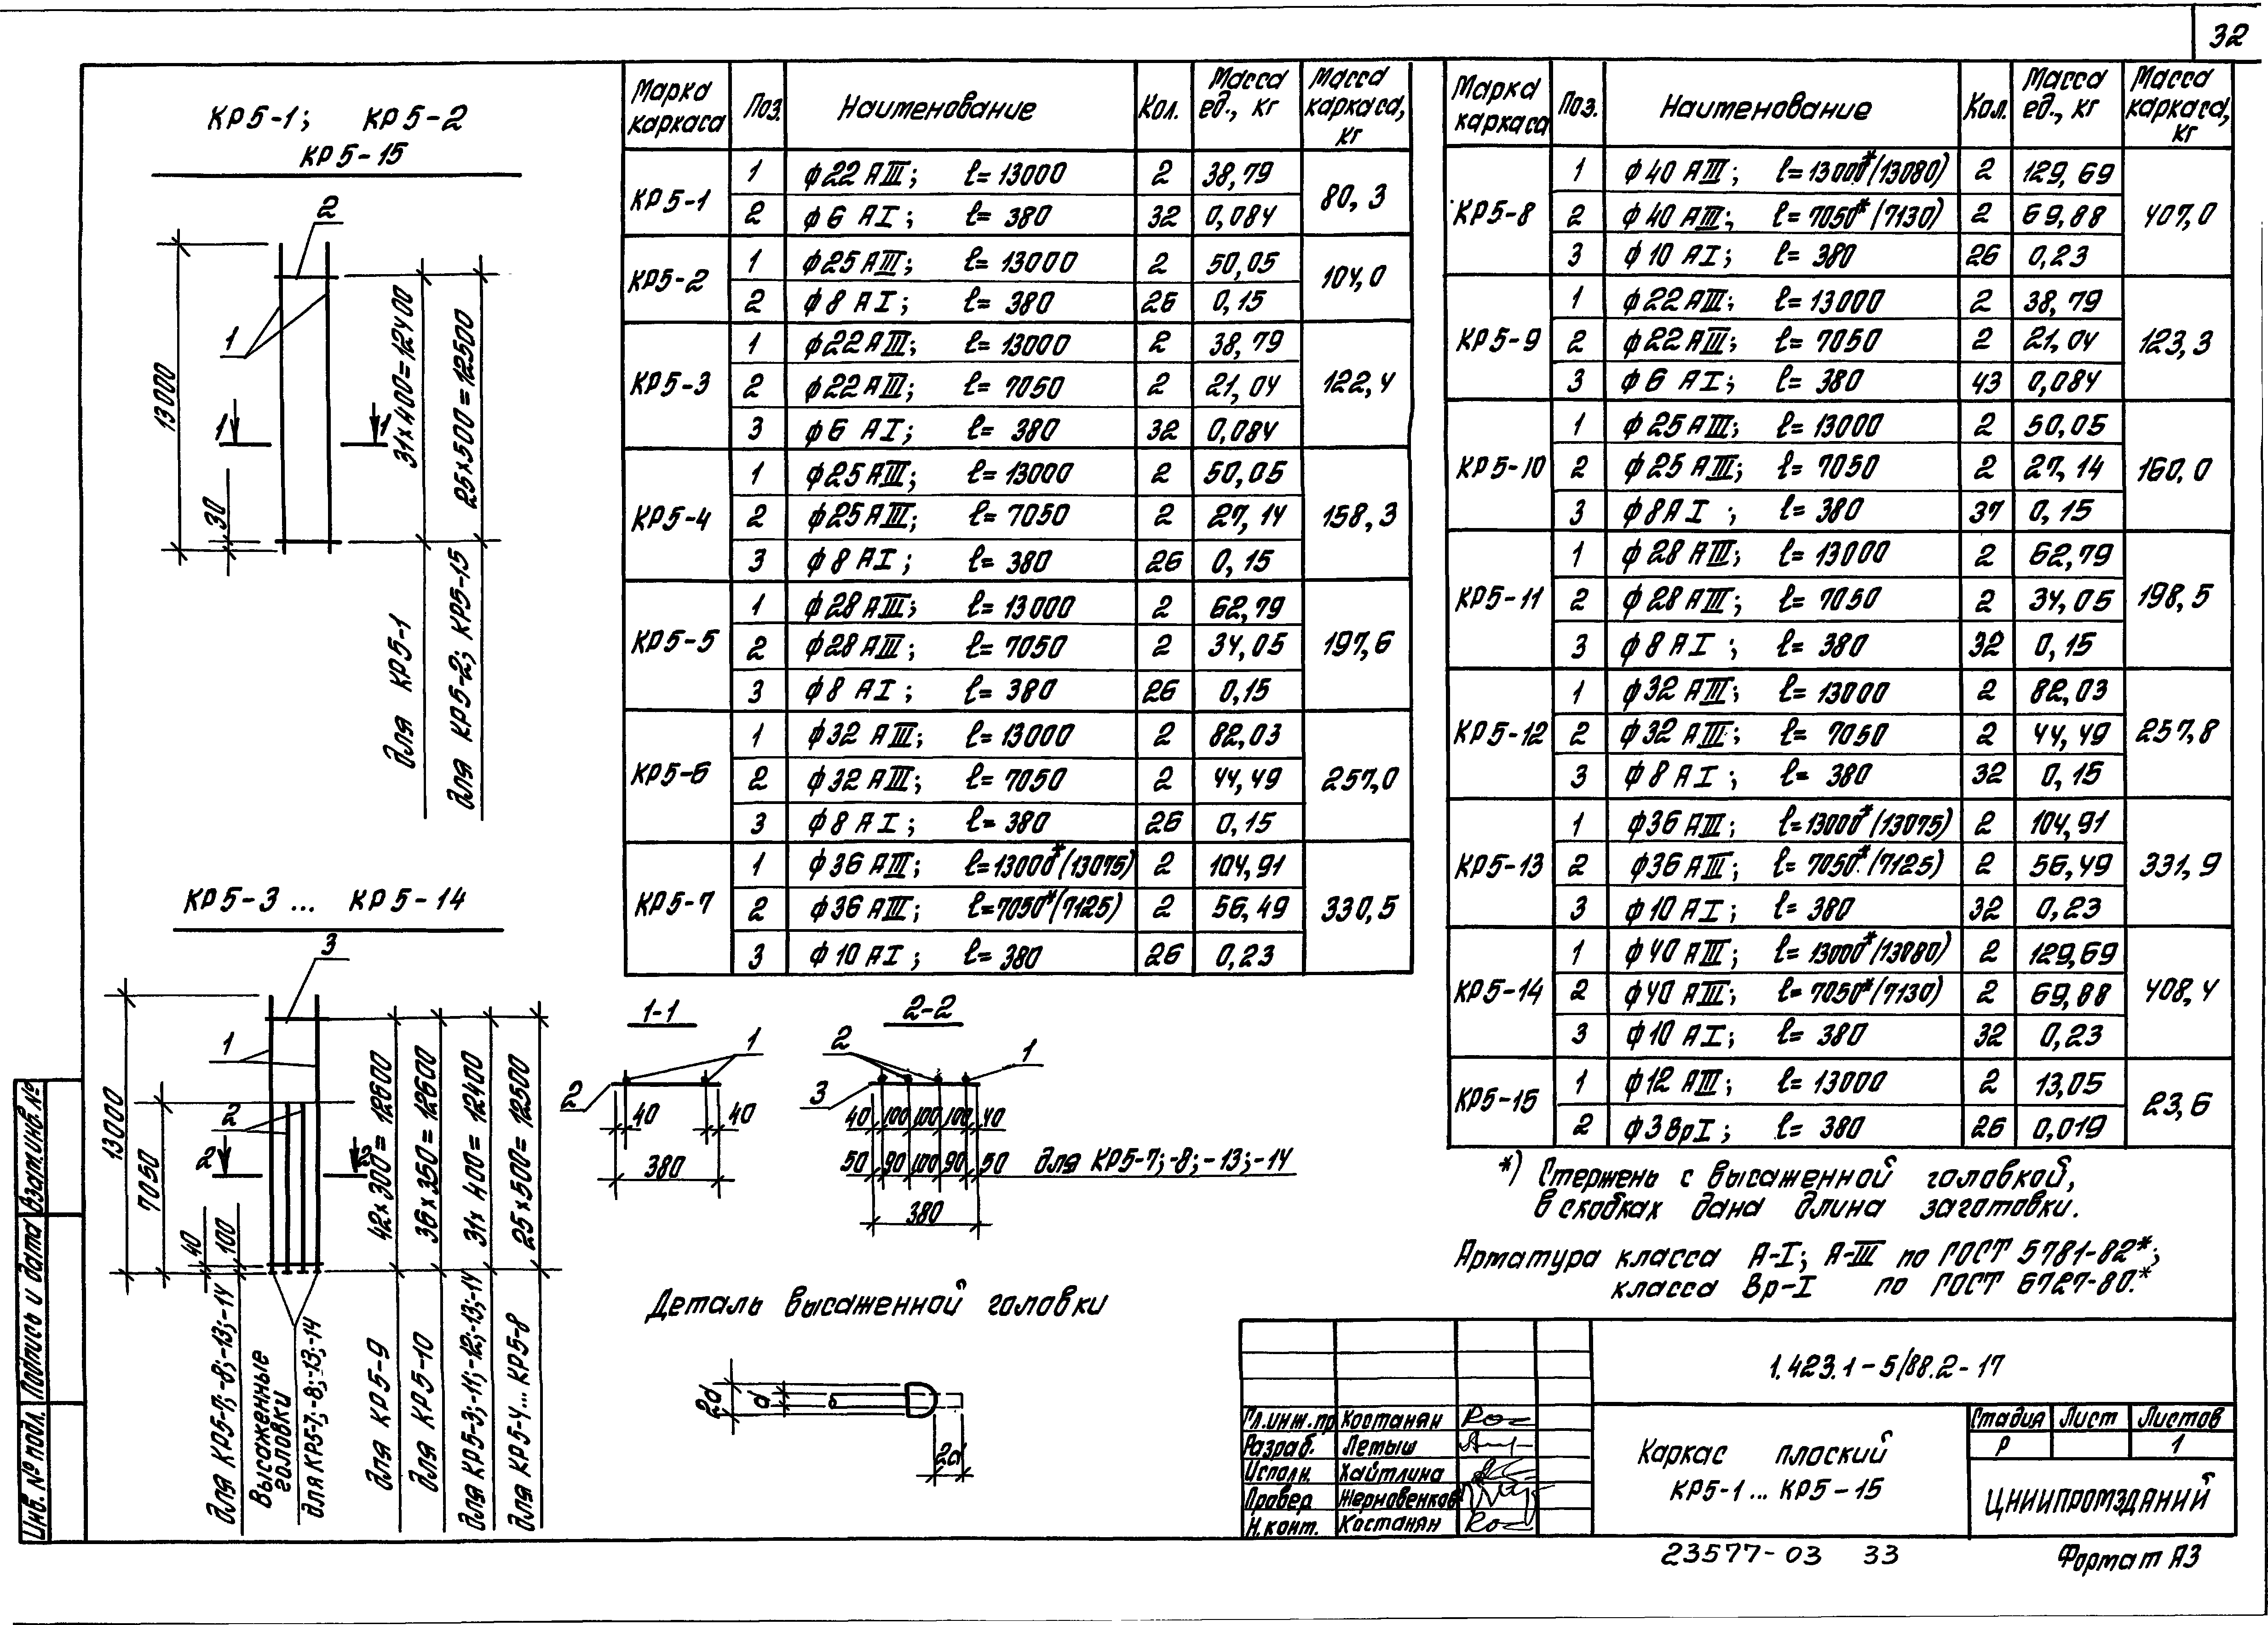 32
КР5-1; КР5-2
КР5-15
2
1
13000
1 1
30
31×400=12400
25×500=12500
для КР5-1
для КР5-2; КР5-15
КР5-3 ... КР5-14
3
1
2
2 2
13000
7050
40
100
42×300=12600
36×350=12600
31×400=12400
25×500=12500
для КР5-7;-8;-13;-14
Высаженные
головки
для КР5-7;-8;-13;-14
для КР5-9
для КР5-10
для КР5-3;-11;-12;-13;-14
для КР5-4... КР5-8
Марка каркаса Поз. Наименование Кол. Масса ед., кг Масса каркаса, кг
КР5-1 1 ϕ22 АIII; ℓ=13000 2 38,79 80,3
2 ϕ6 АI; ℓ=380 32 0,084
КР5-2 1 ϕ25 АIII; ℓ=13000 2 50,05 104,0
2 ϕ8 АI; ℓ=380 26 0,15
КР5-3 1 ϕ22 АIII; ℓ=13000 2 38,79 122,4
2 ϕ22 АIII; ℓ=7050 2 21,04
3 ϕ6 АI; ℓ=380 32 0,084
КР5-4 1 ϕ25 АIII; ℓ=13000 2 50,05 158,3
2 ϕ25 АIII; ℓ=7050 2 27,14
3 ϕ8 АI; ℓ=380 26 0,15
КР5-5 1 ϕ28 АIII; ℓ=13000 2 62,79 197,6
2 ϕ28 АIII; ℓ=7050 2 34,05
3 ϕ8 АI; ℓ=380 26 0,15
КР5-6 1 ϕ32 АIII; ℓ=13000 2 82,03 257,0
2 ϕ32 АIII; ℓ=7050 2 44,49
3 ϕ8 АI; ℓ=380 26 0,15
КР5-7 1 ϕ36 АIII; ℓ=13000*(13075) 2 104,91 330,5
2 ϕ36 АIII; ℓ=7050*(7125) 2 56,49
3 ϕ10 АI; ℓ=380 26 0,23
1-1
1
2
40 40
380
2-2
2 1
3
40 100 100 100 40
50 90 100 90 50 для КР5-7;-8;-13;-14
380
Деталь высаженной головки
2d d
2d
Марка каркаса Поз. Наименование Кол. Масса ед., кг Масса каркаса, кг
КР5-8 1 ϕ40 АIII; ℓ=13000*(13080) 2 129,69 407,0
2 ϕ40 АIII; ℓ=7050*(7130) 2 69,88
3 ϕ10 АI; ℓ=380 26 0,23
КР5-9 1 ϕ22 АIII; ℓ=13000 2 38,79 123,3
2 ϕ22 АIII; ℓ=7050 2 21,04
3 ϕ6 АI; ℓ=380 43 0,084
КР5-10 1 ϕ25 АIII; ℓ=13000 2 50,05 160,0
2 ϕ25 АIII; ℓ=7050 2 27,14
3 ϕ8 АI; ℓ=380 37 0,15
КР5-11 1 ϕ28 АIII; ℓ=13000 2 62,79 198,5
2 ϕ28 АIII; ℓ=7050 2 34,05
3 ϕ8 АI; ℓ=380 32 0,15
КР5-12 1 ϕ32 АIII; ℓ=13000 2 82,03 257,8
2 ϕ32 АIII; ℓ=7050 2 44,49
3 ϕ8 АI; ℓ=380 32 0,15
КР5-13 1 ϕ36 АIII; ℓ=13000*(13075) 2 104,91 331,9
2 ϕ36 АIII; ℓ=7050*(7125) 2 56,49
3 ϕ10 АI; ℓ=380 32 0,23
КР5-14 1 ϕ40 АIII; ℓ=13000*(13080) 2 129,69 408,4
2 ϕ40 АIII; ℓ=7050*(7130) 2 69,88
3 ϕ10 АI; ℓ=380 32 0,23
КР5-15 1 ϕ12 АIII; ℓ=13000 2 13,05 23,6
2 ϕ3 ВрI; ℓ=380 26 0,019
*) Стержень с высаженной головкой,
в скобках дана длина заготовки.
Арматура класса А-I; А-III по ГОСТ 5781-82*;
класса Вр-I по ГОСТ 6727-80.*
1.423.1-5/88.2-17
Гл.инж.пр Костанян
Разраб. Летыш
Исполн. Хайтлина
Провер. Жерновенков
Н.конт. Костанян
Каркас плоский
КР5-1 ... КР5-15
Стадия Лист Листов
Р 1
ЦНИИПРОМЗДАНИЙ
23577-03 33
Формат А3
Инв. № подл. Подпись и дата Взам.инв.№